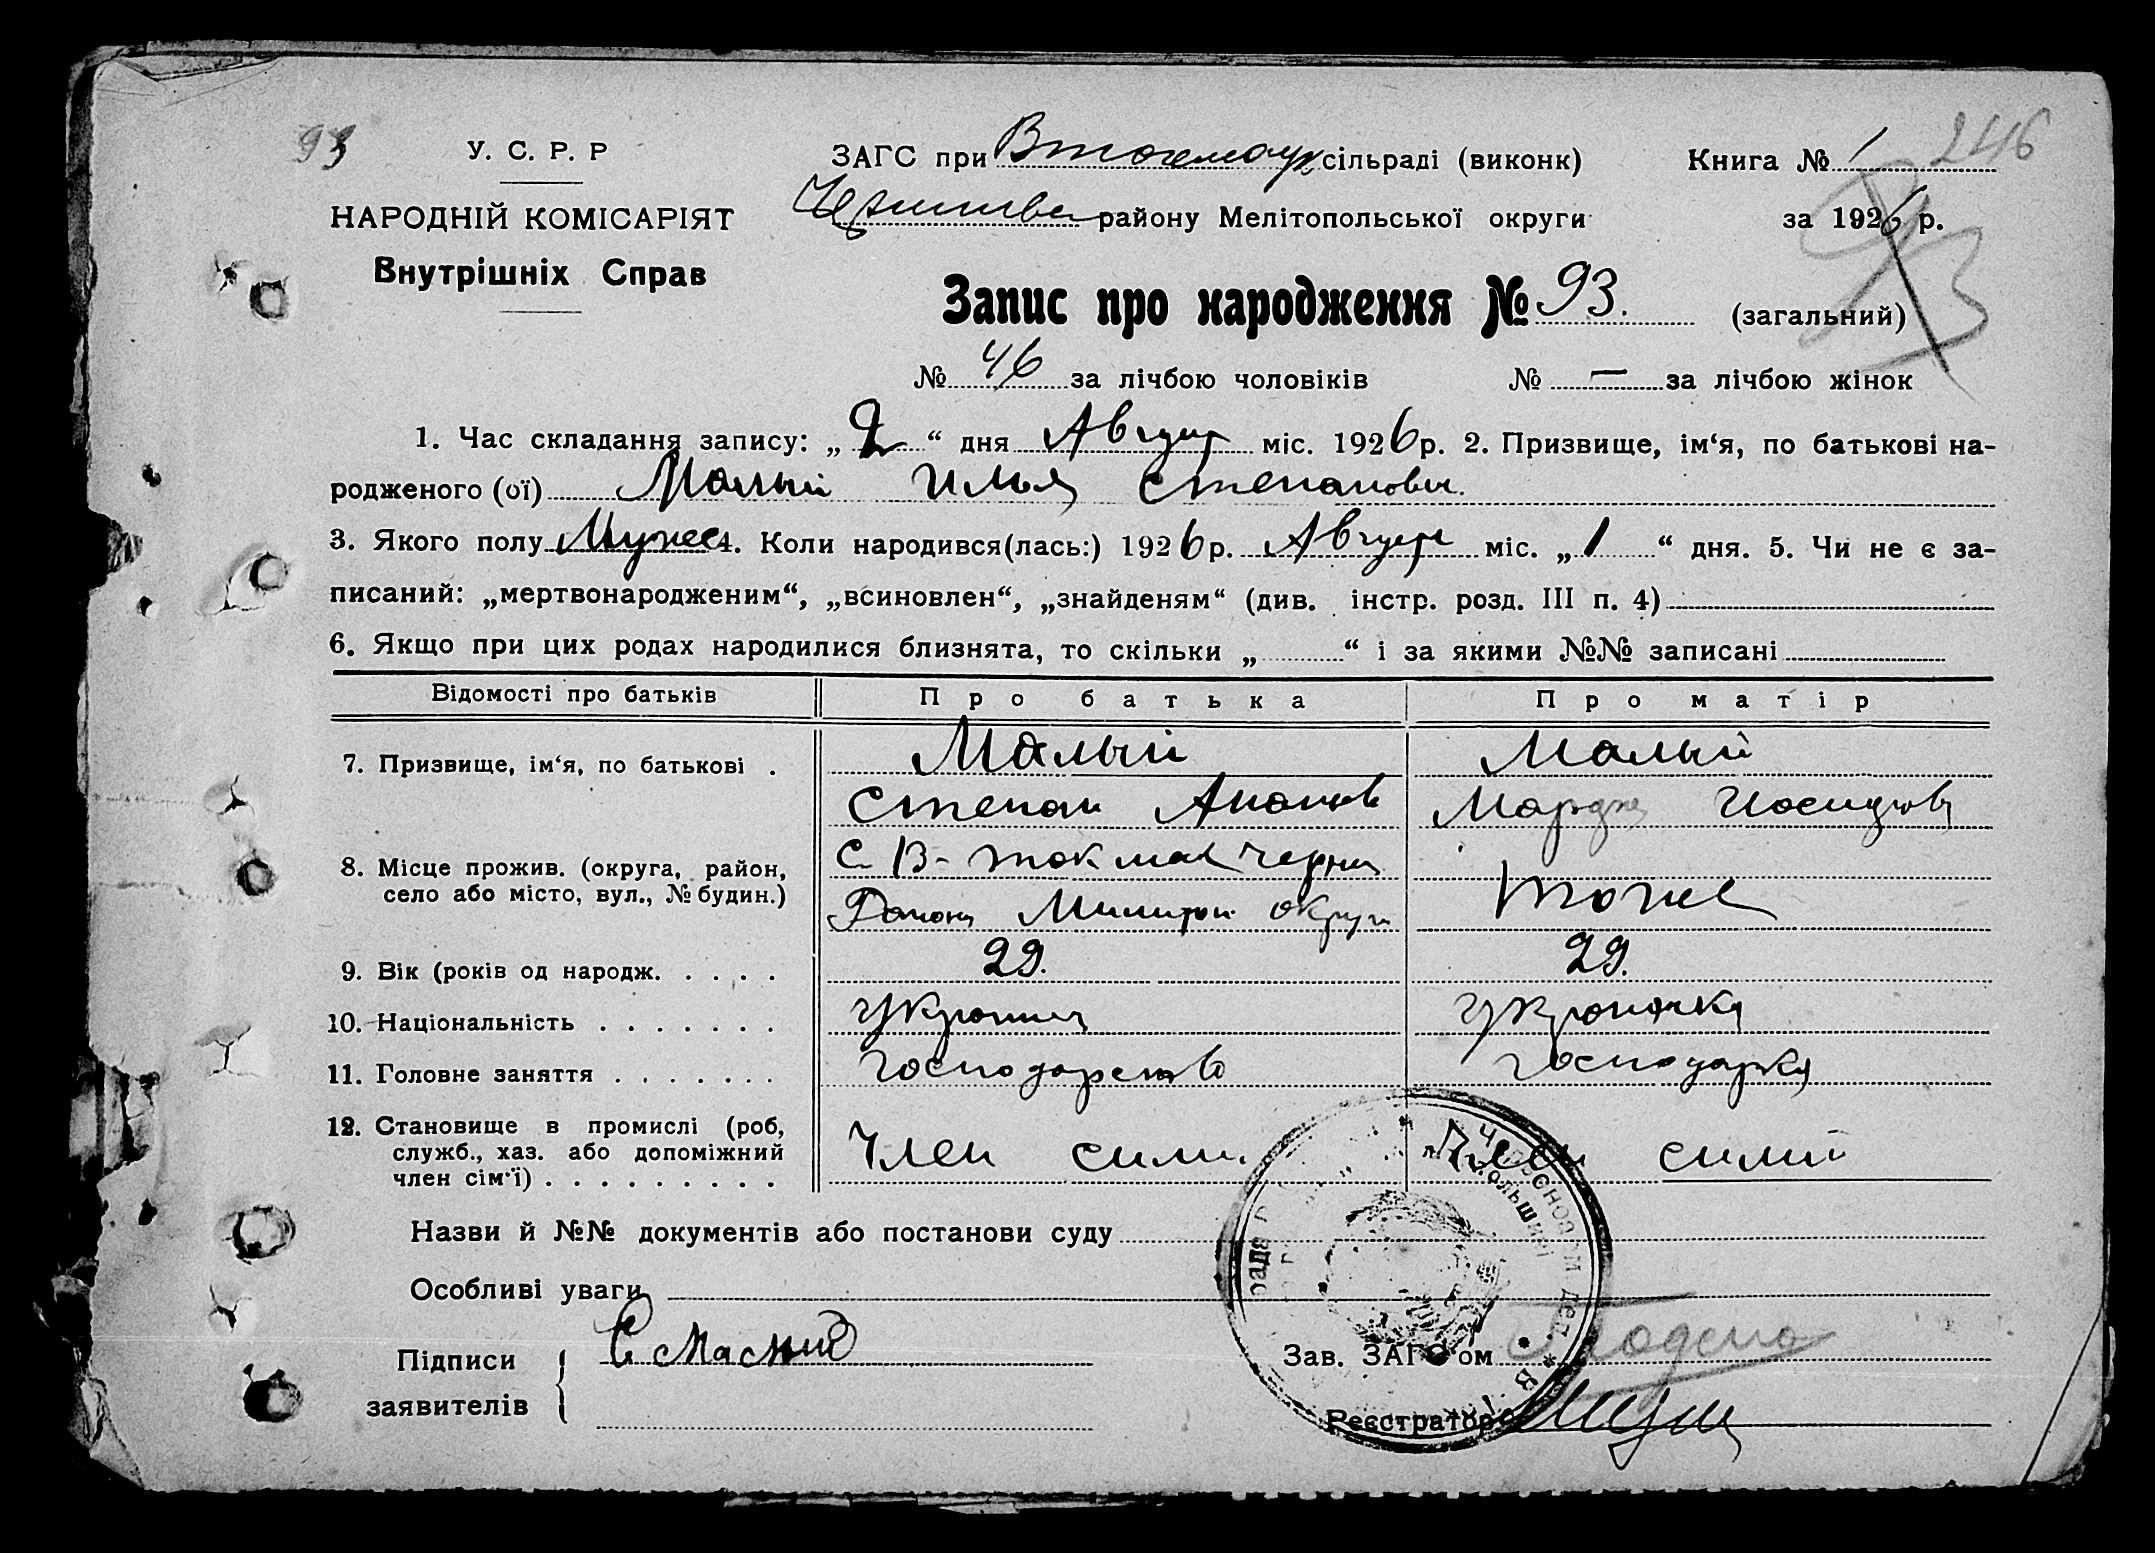 93 У. С. Р. Р ЗАГС при Втокмацк сільраді (виконк) Книга № 1 246
НАРОДНІЙ КОМІСАРІЯТ району Мелітопольської округи за 1926 р.
Внутрішніх Справ
Запис про народження № 93. (загальний) 93
№ 46 за лічбою чоловіків № — за лічбою жінок
1. Час складання запису: „ 2 “ дня Август міс. 1926 р. 2. Призвище, ім‘я, по батькові на-
родженого (ої) Малый Илья Степанович.
3. Якого полу Мужес 4. Коли народився(лась:) 1926 р. Август міс. „ 1 “ дня. 5. Чи не є за-
писаний: „мертвонародженим“, „всиновлен“, „знайденям“ (див. інстр. розд. III п. 4)
6. Якщо при цих родах народилися близнята, то скільки „ “ і за якими №№ записані
Відомості про батьків Про батька Про матір
7. Призвище, ім‘я, по батькові . Малый Малый
Степан Ананов
8. Місце прожив. (округа, район, С. В-токмак черни
село або місто, вул., № будин.) Района округи тоже
9. Вік (років од народж. . . . . 29. 29.
10. Національність . . . . . . . украиначка
11. Головне заняття . . . . . . . господарство господарка
12. Становище в промислі (роб,
служб., хаз. або допоміжний Член сими. Член сими
член сім‘ї) . . . . . . . . .
Назви й №№ документів або постанови суду
Особливі уваги
Підписи С Малий Зав. ЗАГС‘ом
заявителів Реєстратор